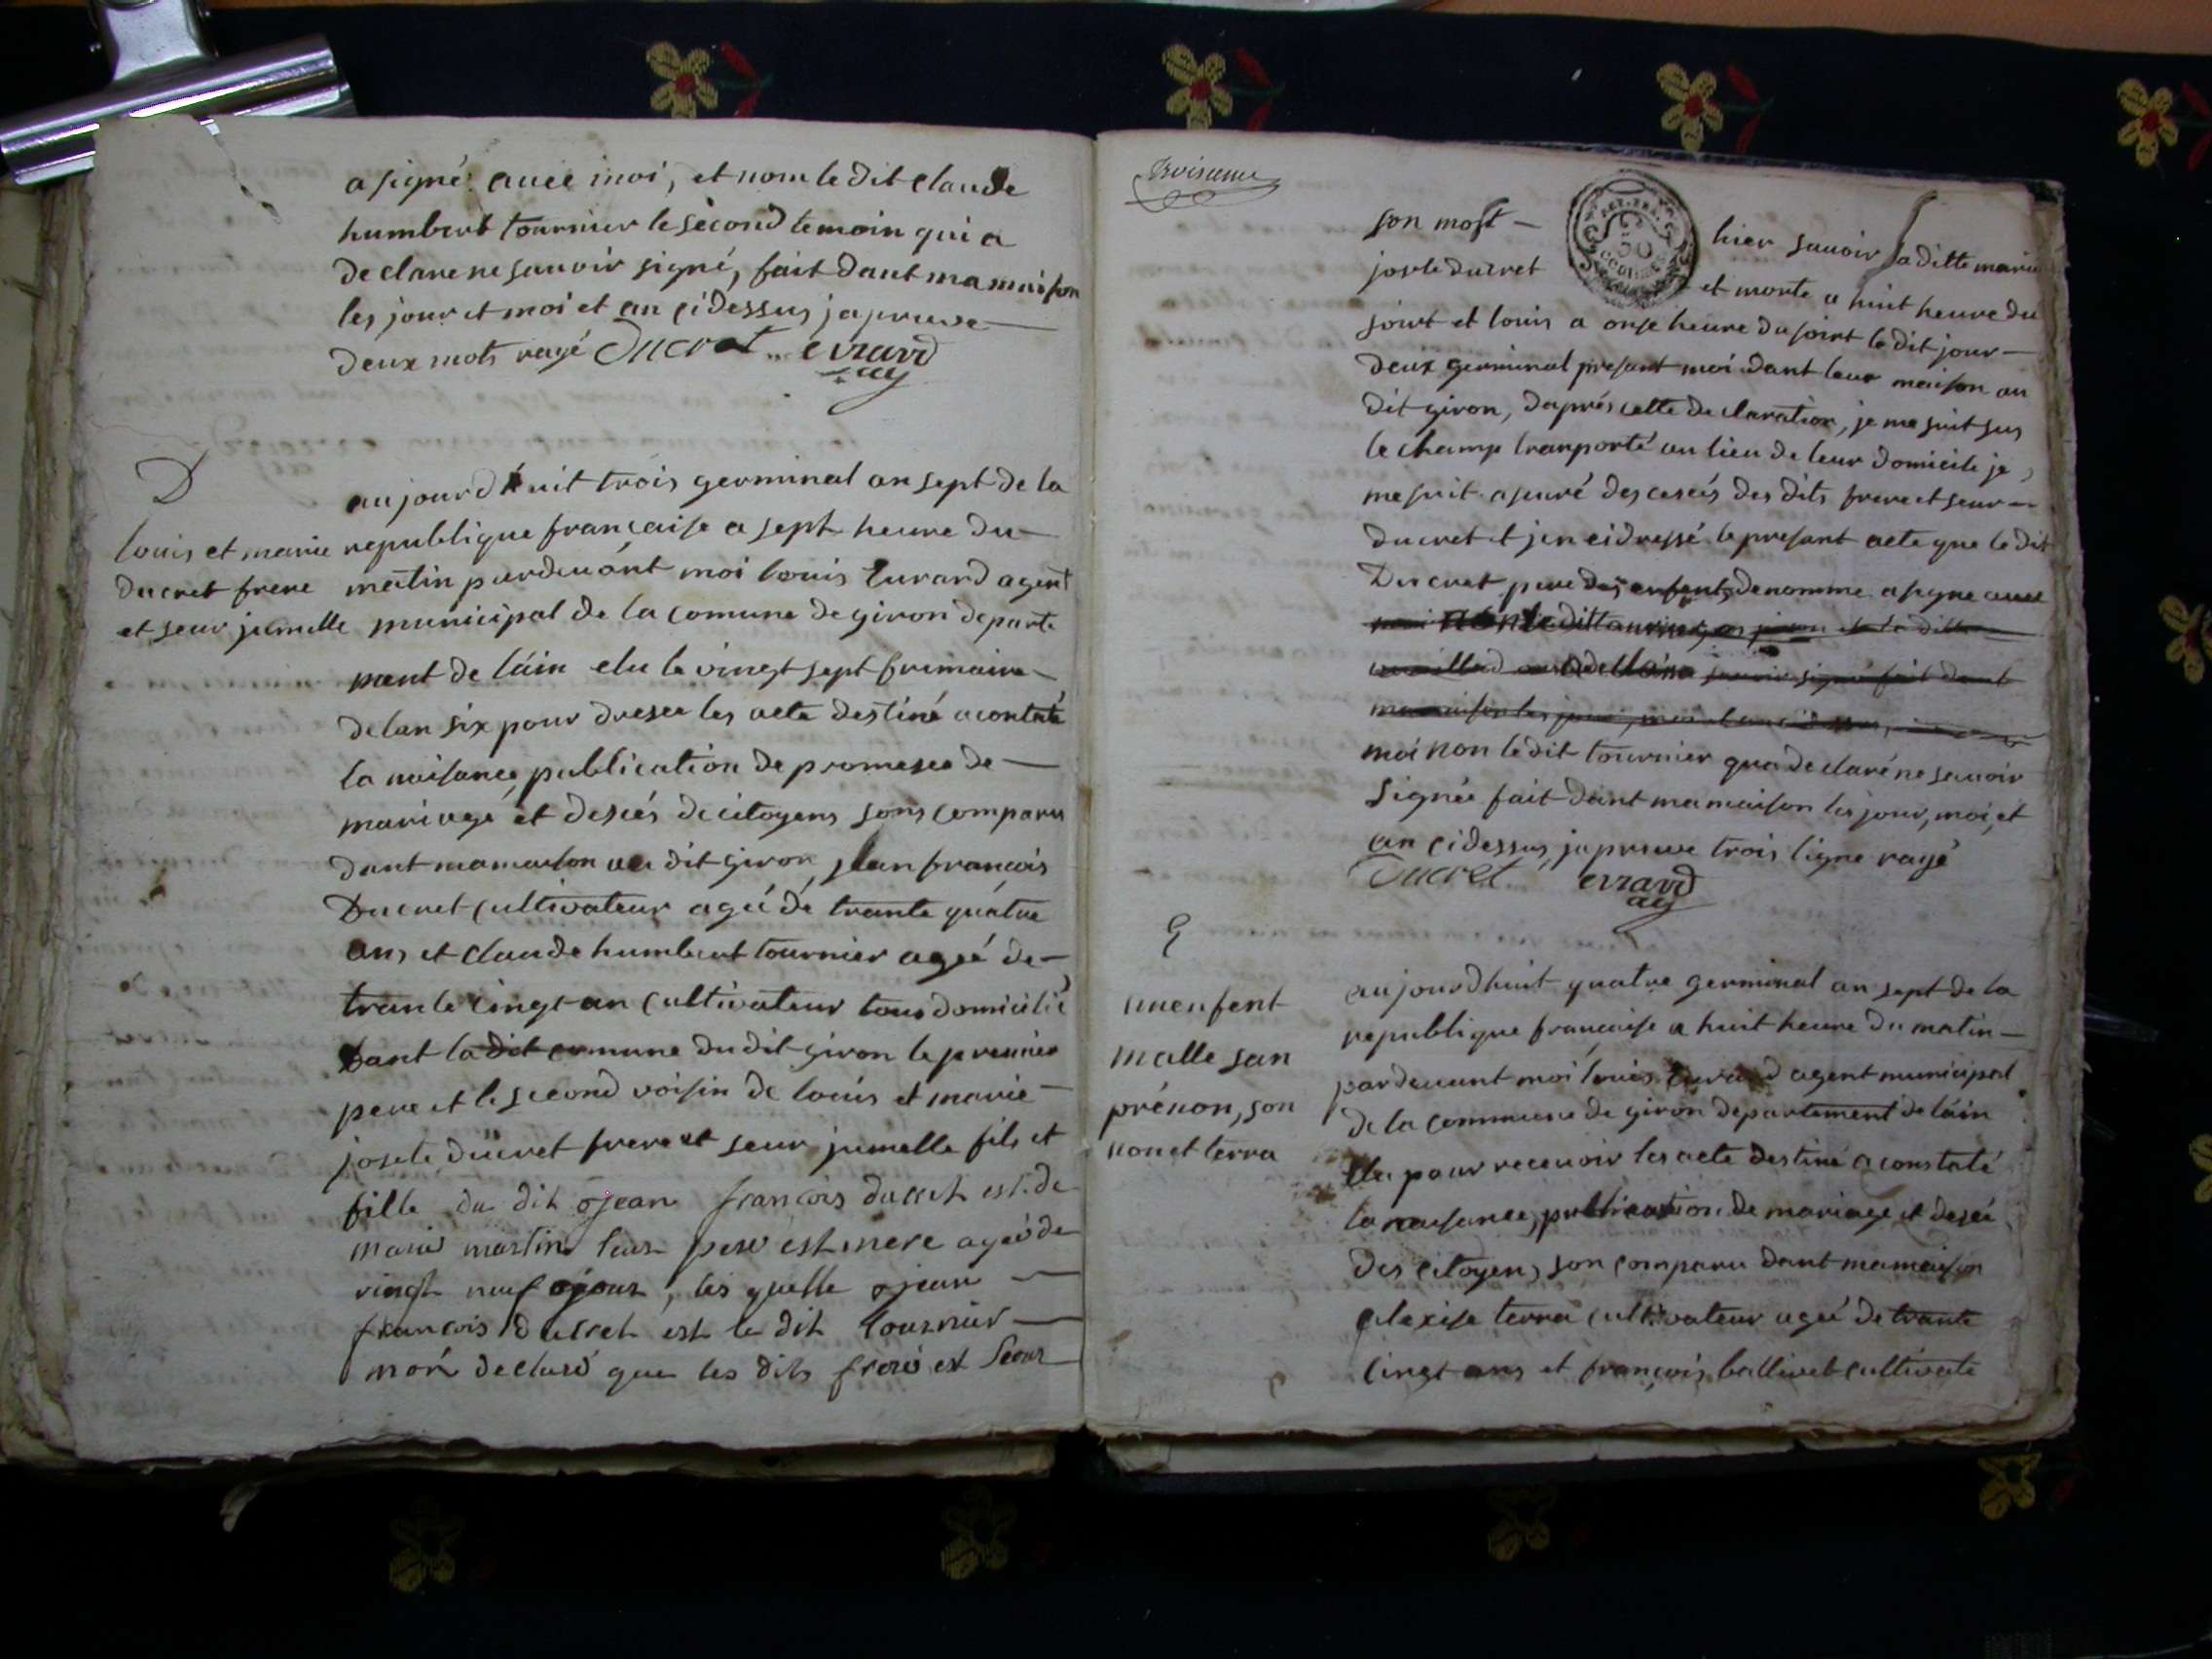 a signé avec moi, et nom le dit claude
humbert tournier le second temoin qui a
declare ne sauvoir signé, fait dant ma maison
les jour et moi et an cidessus japruve
deux mots rayé Ducret evrard
ag
D
louis et marie
ducret frere
et seur jumelle
aujourdhuit trois germinal an sept de la
republique française a sept heure du
matin pardevant moi louis Evrard agent
municipal de la comune de giron departe
ment de lain elu le vingt sept frimaire
delan six pour dreser les acte destiné a contaté
la naisance, publication de promesee de
mariage et deseés de citoyens sons comparu
dant mamaison au dit giron, jean francois
Ducret cultivateur ageé de trante quatre
ans et claude humbert tournier ageé de
trante cinqt an cultivateur tous domicilié
dant la dit comune du dit giron le premier
pere et le second voisin de louis et marie
josete ducret frere et seur jumelle fils et
fille du dit jean francois ducret est de
marie martin leur pere est mere ageé de
vingt neuf jour, les quelle jean
francois ducret est le dit tournier
mon declaré que les dits frere est seour
son mort hier sauvoir la ditte marie
josete ducret et morte a huit heure du
soirt et louis a onse heure du soirt le dit jour
deux germinal presant moi dant leur maison au
dit giron, daprés cette declaration, je me suit sus
le champ tranporté au lieu de leur domicile je
me suit asuré des deseés des dits frere et seur
ducret et jen ei dressé le presant acte que le dit
Ducret pere des enfents denomme a signe avec
moi non le dit tournier qua declaré ne sauvoir
signée fait dant ma maison les jour, moi, et
an cidessus japruve trois ligne rayé
Ducret evrard
ag
un enfent
malle san
prénon, son
non et terra
aujourdhuit quatre germinal an sept de la
republique française a huit heure du matin
pardevant moi louis Evrard agent municipal
de la commune de giron departement de lain
Elu pour recevoir les acte destiné a constaté
la naisance, publication de mariage et deseé
des citoyens son comparu dant mamaison
alexise terra cultivateur ageé de trante
cinqt ans et françois ballivet cultivate